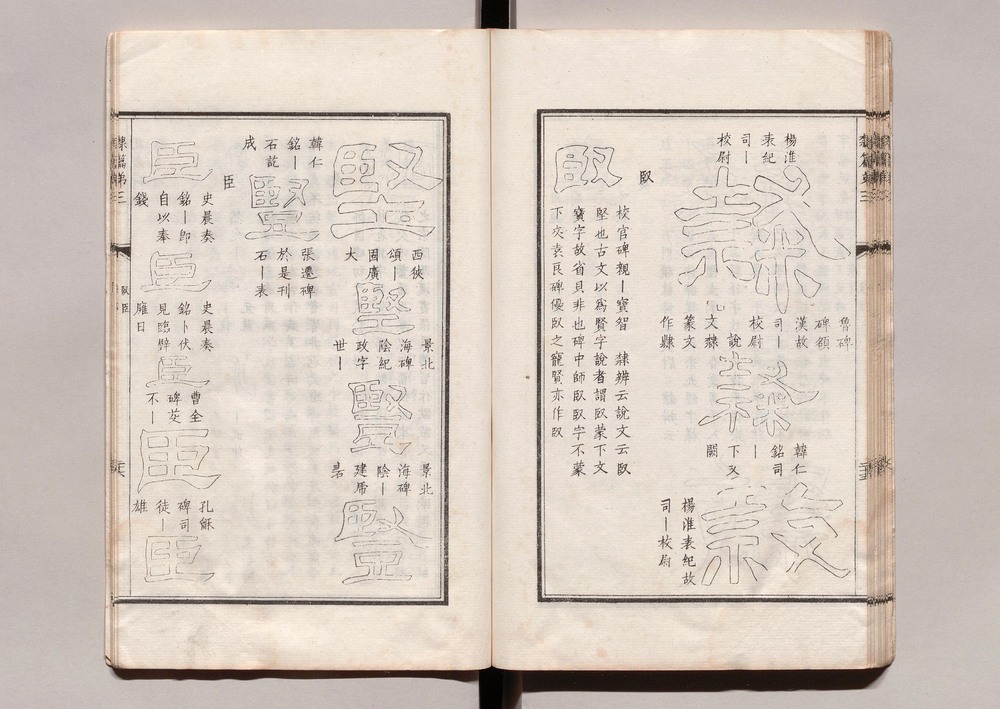 楊淮
表紀
司丨
校尉
魯碑
碑領
漢故
司丨
校尉
說
文隸
篆文
作隸
韓仁
銘司
丨
下又
闕
楊淮表紀故
司丨校尉
臤
臤
校官碑親丨寶智 隸辨云說文云臤
堅也古文以為賢字說者謂臤蒙下文
寶字故省貝非也碑中師臤臤字不蒙
下文袁良碑優臤之寵賢亦作臤
堅
西狹
頌丨
固廣
大
堅
景北
海碑
陰紀
政字
世丨
堅
景北
海碑
陰丨
建
堅
韓仁
銘丨
石
成
豎
張遷碑
於是刊
石丨表
臣
臣
史晨奏
銘丨即
自以奉
錢
臣
史晨奏
銘卜伏
見臨辟
雍日
臣
曹全
碑
不丨
臣
孔龢
碑司
徒丨
雄
臣
隸篇第三
臤臣